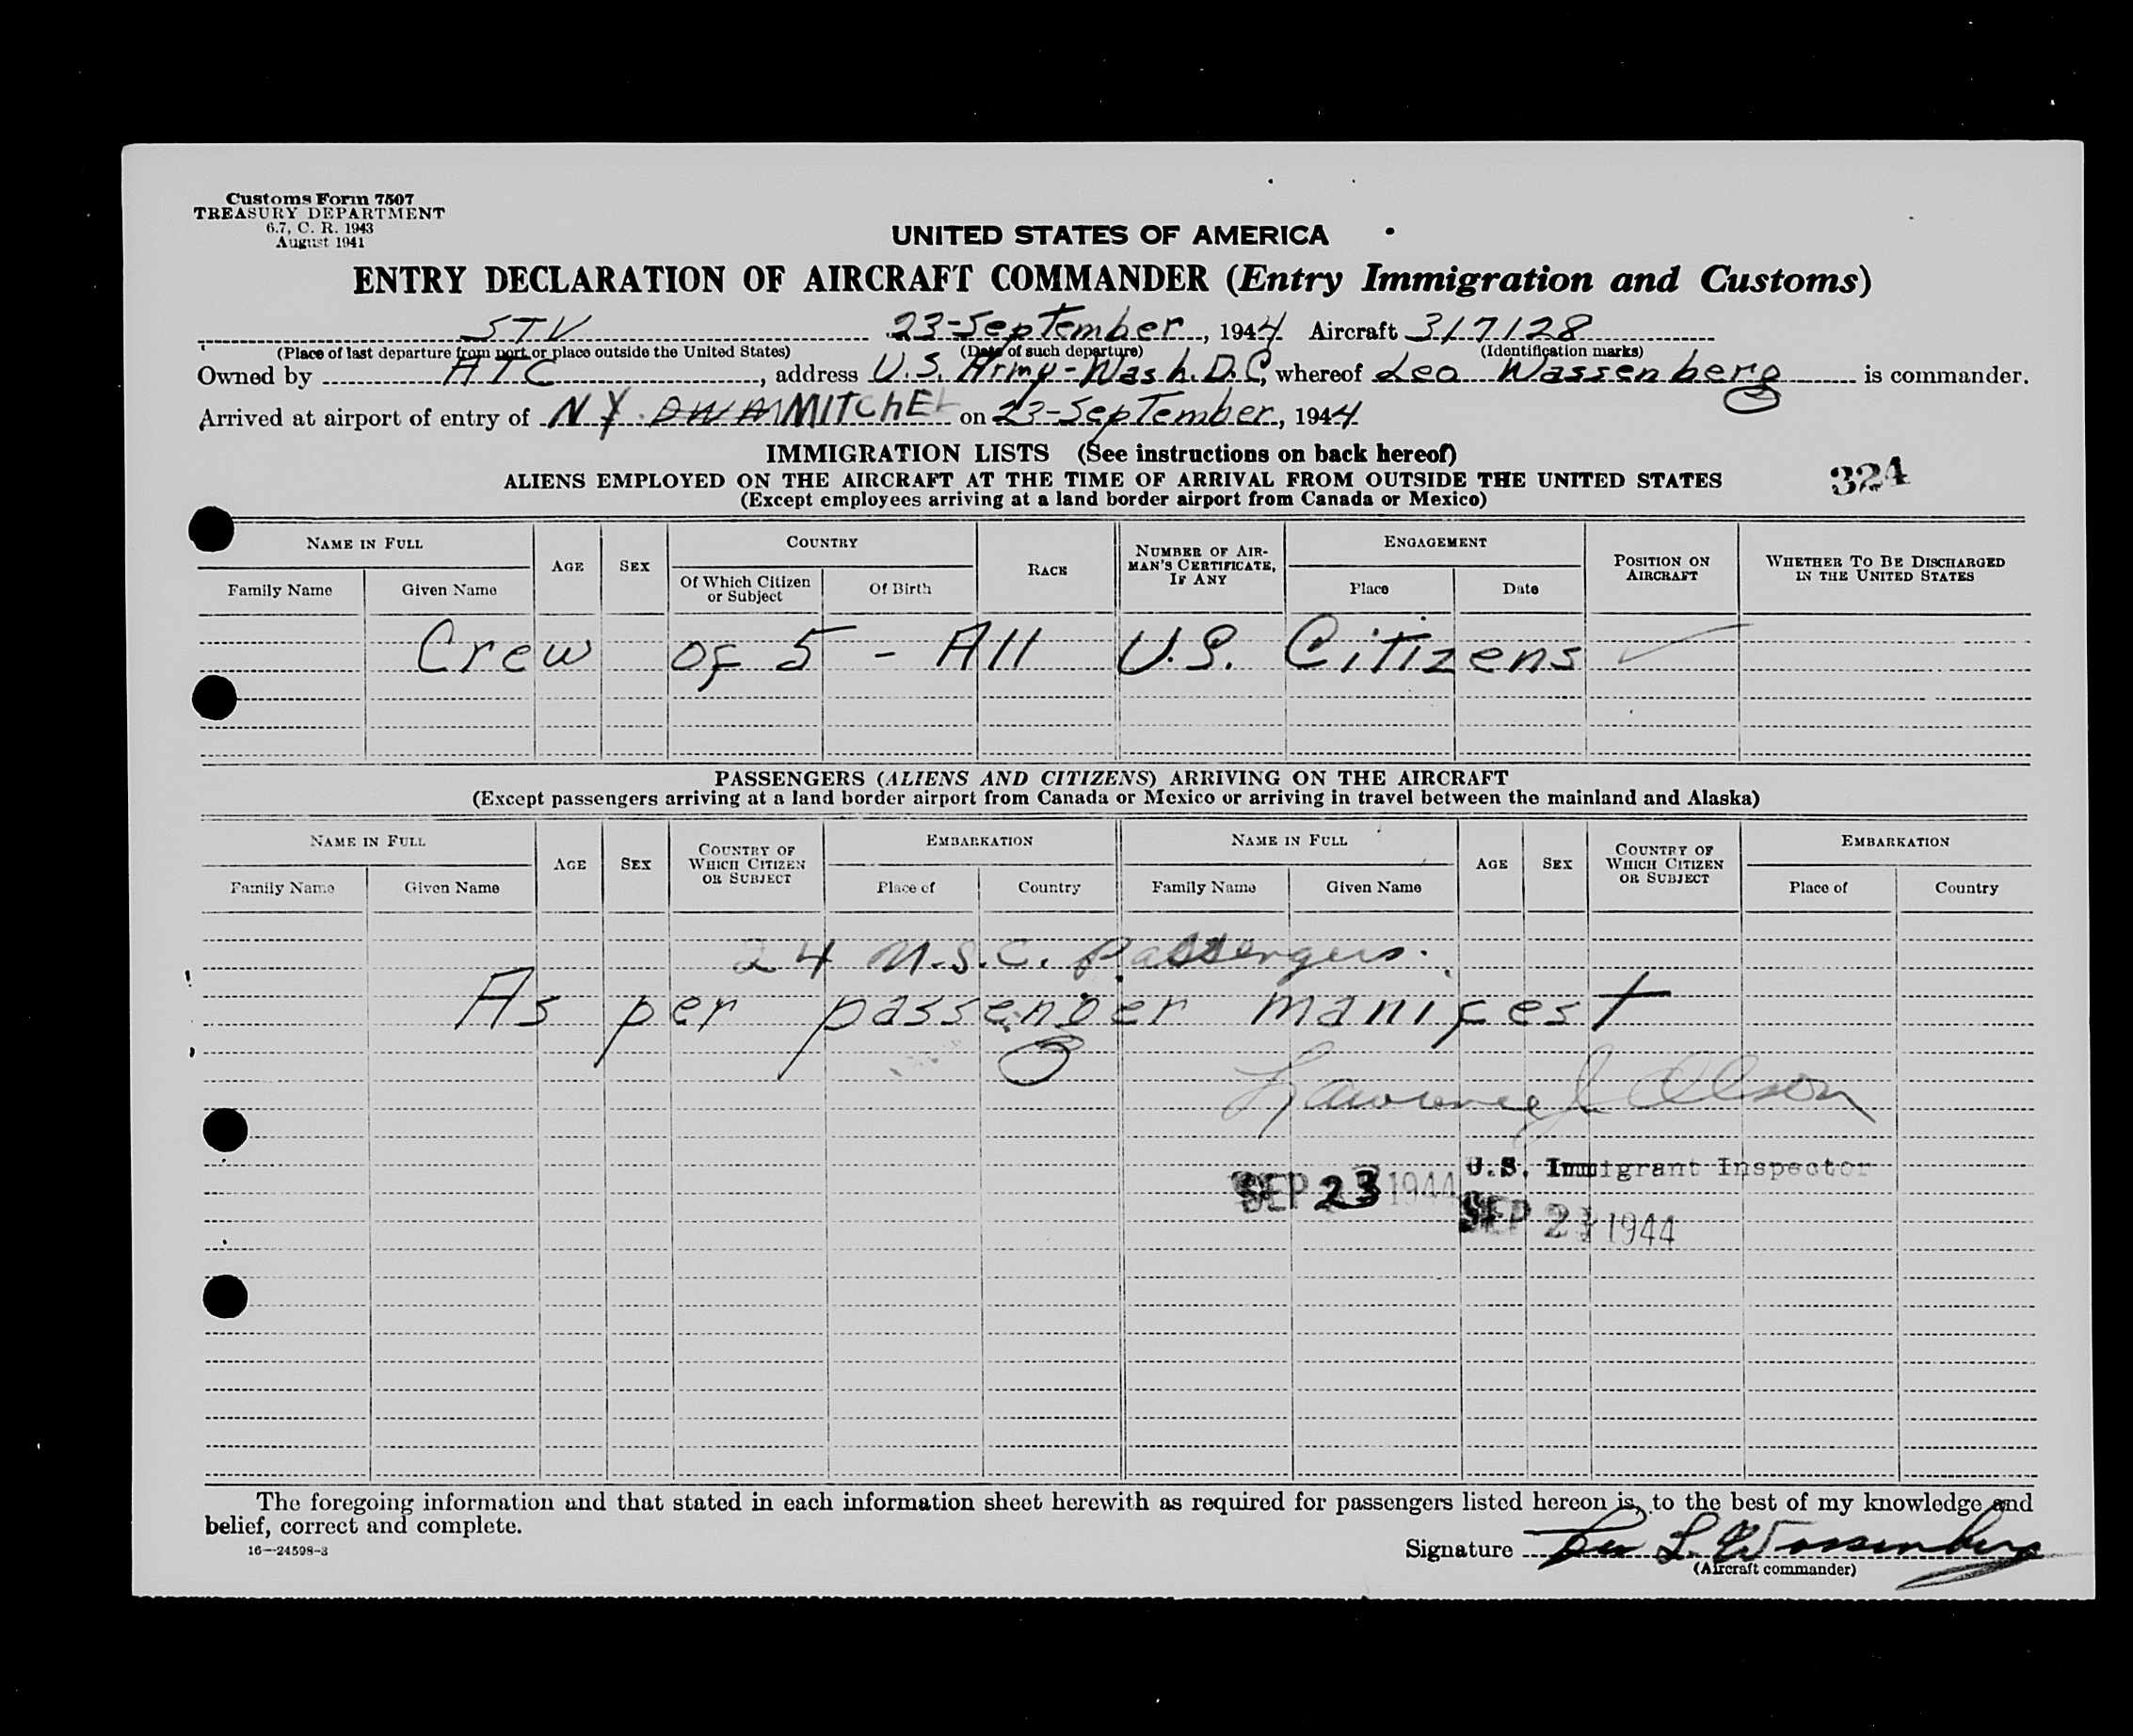 Customs Form 7507
TREASURY DEPARTMENT
6.7, C. R. 1943
August 1941
UNITED STATES OF AMERICA
ENTRY DECLARATION OF AIRCRAFT COMMANDER (Entry Immigration and Customs)
STV 23-September, 1944 Aircraft 317128
(Place of last departure from port or place outside the United States) (Date of such departure) (Identification marks)
Owned by ATC, address U.S. Army-Wash. D.C, whereof Leo Wassenberg is commander.
Arrived at airport of entry of NY. MITChEL on 23-September, 1944
IMMIGRATION LISTS (See instructions on back hereof)
ALIENS EMPLOYED ON THE AIRCRAFT AT THE TIME OF ARRIVAL FROM OUTSIDE THE UNITED STATES
324
(Except employees arriving at a land border airport from Canada or Mexico)
NAME IN FULL AGE SEX COUNTRY RACE NUMBER OF AIRMAN'S CERTIFICATE, IF ANY ENGAGEMENT POSITION ON AIRCRAFT WHETHER TO BE DISCHARGED IN THE UNITED STATES
Family Name Given Name Of Which Citizen or Subject Of Birth Place Date
Crew of 5 - All U.S. Citizens
PASSENGERS (ALIENS AND CITIZENS) ARRIVING ON THE AIRCRAFT
(Except passengers arriving at a land border airport from Canada or Mexico or arriving in travel between the mainland and Alaska)
NAME IN FULL AGE SEX COUNTRY OF WHICH CITIZEN OR SUBJECT EMBARKATION NAME IN FULL AGE SEX COUNTRY OF WHICH CITIZEN OR SUBJECT EMBARKATION
Family Name Given Name Place of Country Family Name Given Name Place of Country
24 U.S.C. Passengers.
As per passenger manifest
Lawrence J Olson
U.S. Immigrant Inspector
SEP 23 1944
SEP 23 1944
The foregoing information and that stated in each information sheet herewith as required for passengers listed hereon is, to the best of my knowledge and
belief, correct and complete.
16—24598-3
Signature Leo L. Wassenberg
(Aircraft commander)